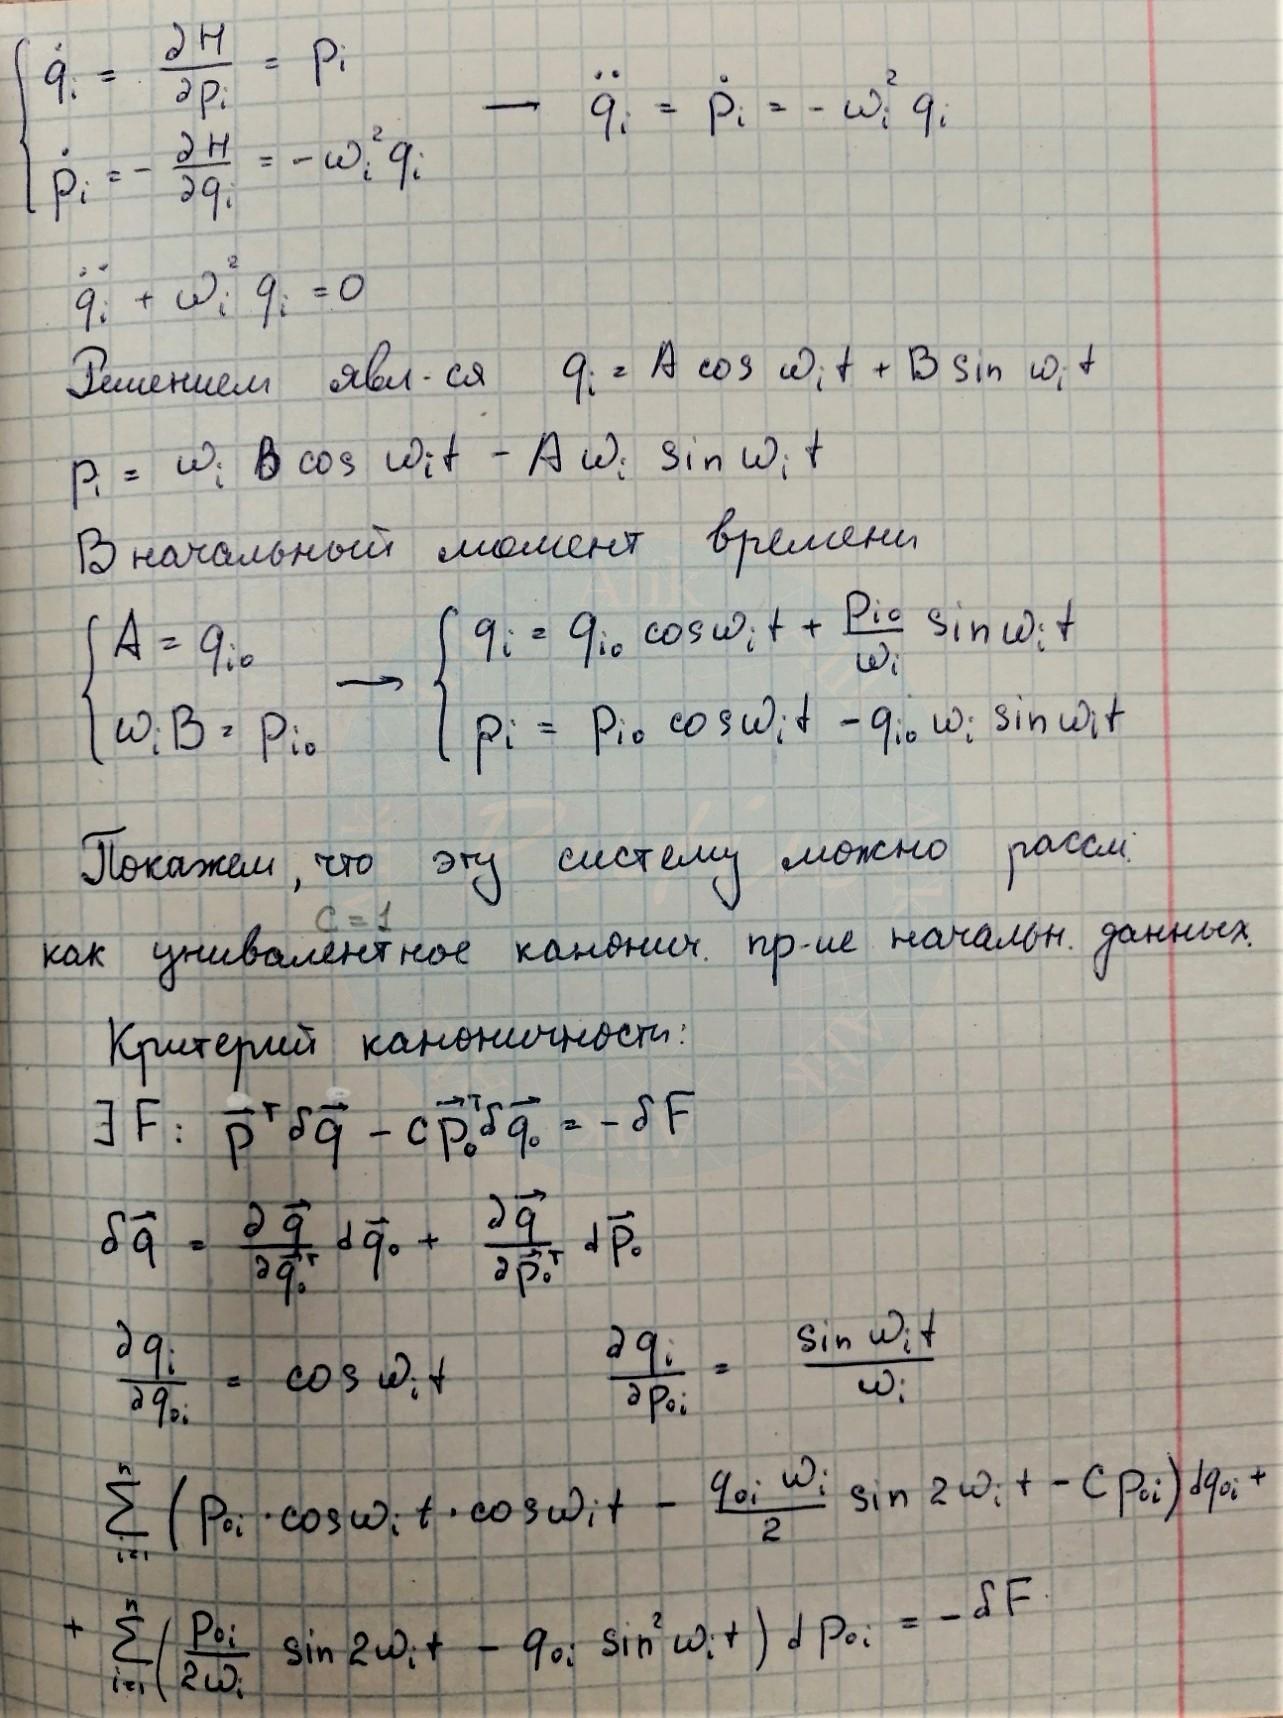 { q̇ᵢ = ∂H/∂pᵢ = pᵢ
{ ṗᵢ = - ∂H/∂qᵢ = -ωᵢ² qᵢ → q̈ᵢ = ṗᵢ = - ωᵢ² qᵢ
q̈ᵢ + ωᵢ² qᵢ = 0
Решением явл-ся qᵢ = A cos ωᵢt + B sin ωᵢt
pᵢ = ωᵢ B cos ωᵢt - A ωᵢ sin ωᵢt
В начальный момент времени
{ A = qᵢ₀ → { qᵢ = qᵢ₀ cos ωᵢt + pᵢ₀/ωᵢ sin ωᵢt
{ ωᵢB = pᵢ₀ { pᵢ = pᵢ₀ cos ωᵢt - qᵢ₀ ωᵢ sin ωᵢt
Покажем, что эту систему можно рассм.
C = 1
как унивалентное канонич. пр-ие начальн. данных.
Критерий каноничности:
∃ F: p⃗ᵀ δq⃗ - C p⃗₀ᵀ δq⃗₀ = - δF
δq⃗ = ∂q⃗/∂q⃗₀ᵀ dq⃗₀ + ∂q⃗/∂p⃗₀ᵀ dp⃗₀
∂qᵢ/∂q₀ᵢ = cos ωᵢt ∂qᵢ/∂p₀ᵢ = sin ωᵢt/ωᵢ
∑ᵢ₌₁ⁿ (p₀ᵢ · cos ωᵢt · cos ωᵢt - q₀ᵢ ωᵢ/2 sin 2ωᵢt - C p₀ᵢ) dq₀ᵢ +
+ ∑ᵢ₌₁ⁿ (p₀ᵢ/2ωᵢ sin 2ωᵢt - q₀ᵢ sin² ωᵢt) dp₀ᵢ = - δF